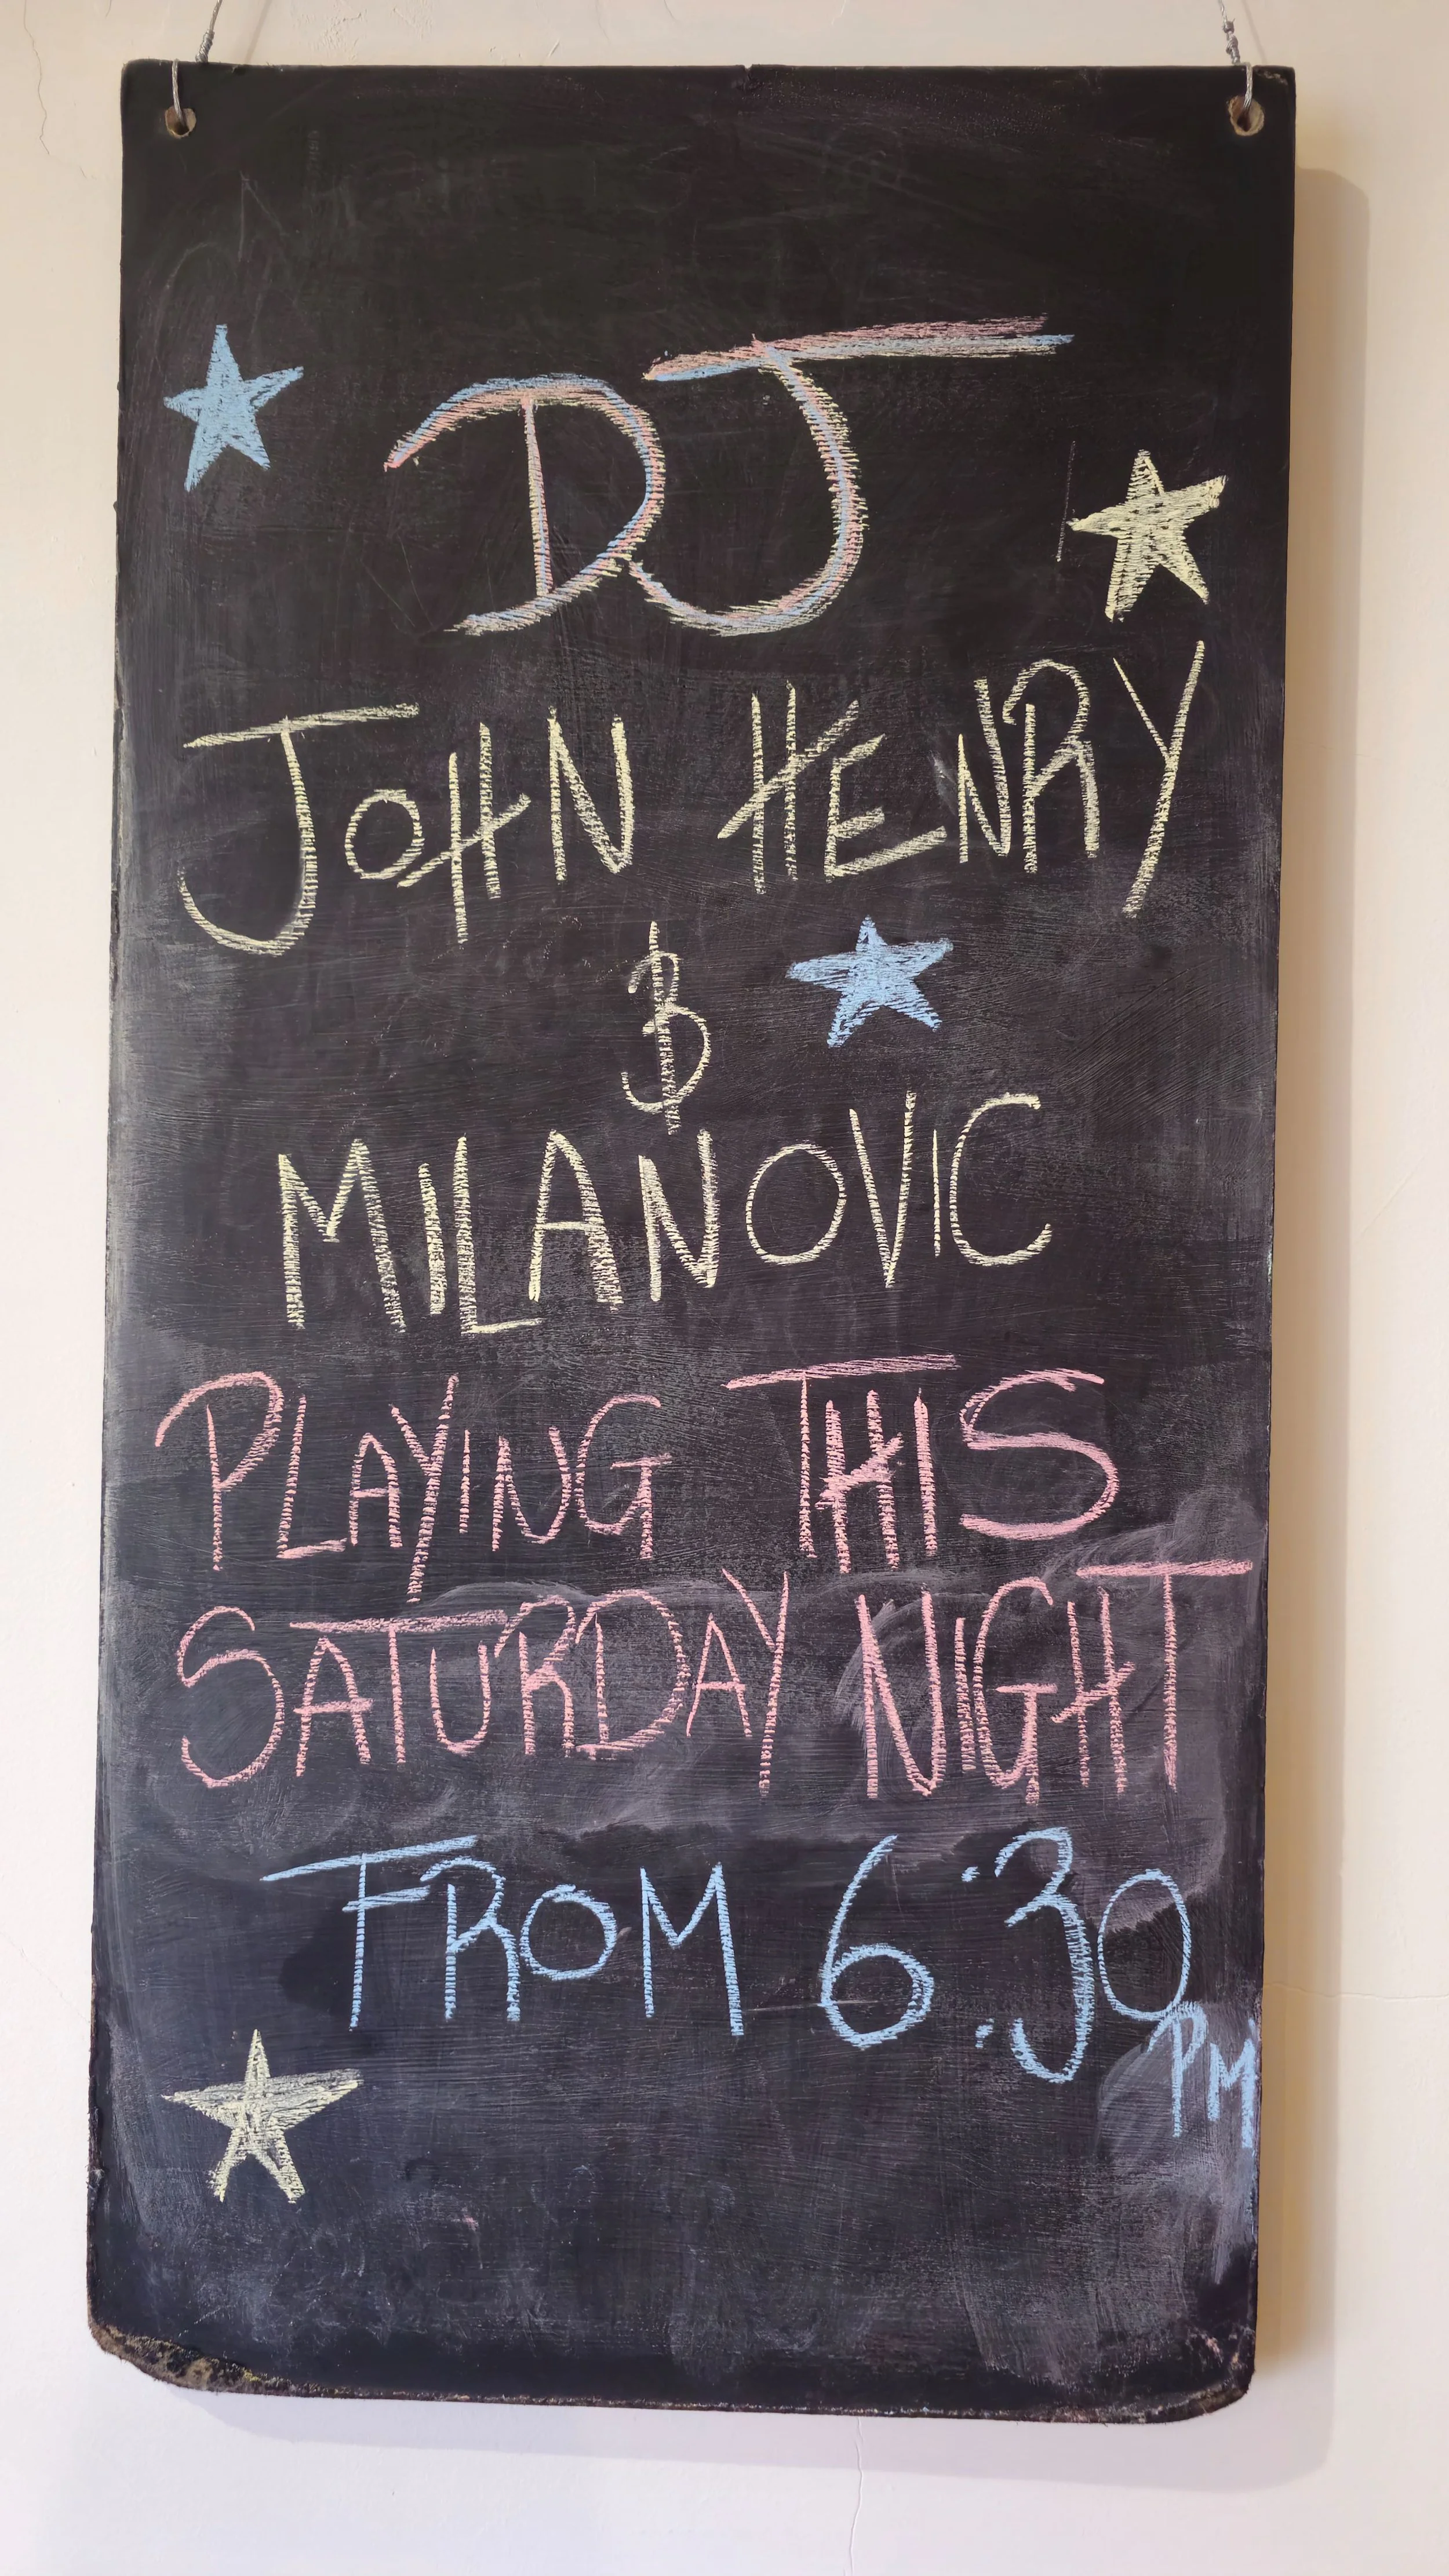 DJ
JOHN HENRY
&
MILANOVIC
PLAYING THIS
SATURDAY NIGHT
FROM 6:30
PM